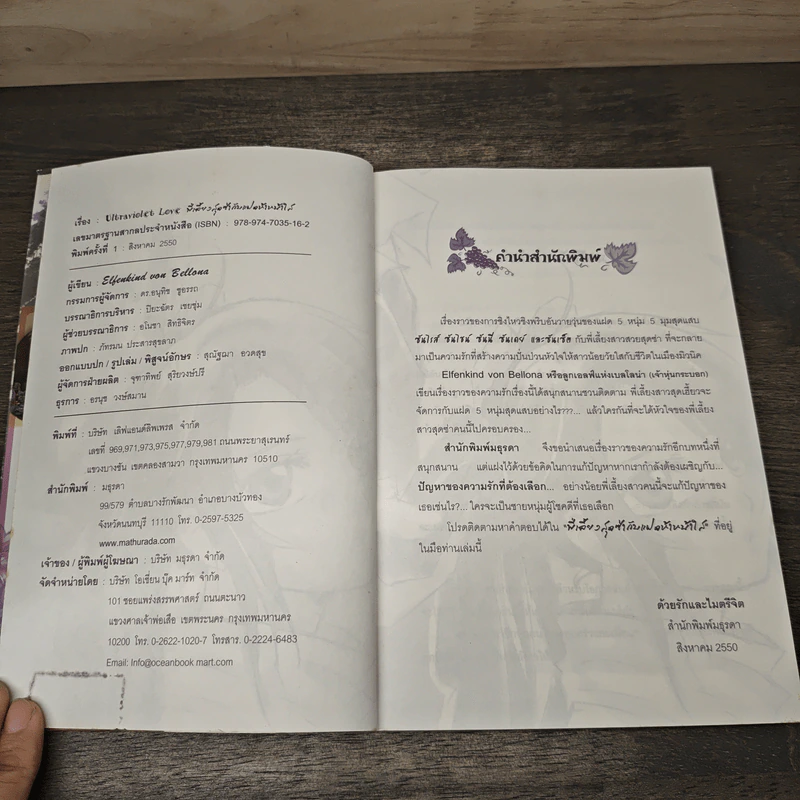 เรื่อง : Ultraviolet Love พี่เลี้ยงสุดซ่ากับแฝดห้าหน้าใส
เลขมาตรฐานสากลประจำหนังสือ (ISBN) : 978-974-7035-16-2
พิมพ์ครั้งที่ 1 : สิงหาคม 2550
ผู้เขียน : Elfenkind von Bellona
กรรมการผู้จัดการ : ดร.อนุทิช ชูอรรถ
บรรณาธิการบริหาร : ปิยะฉัตร เขยชุม
ผู้ช่วยบรรณาธิการ : อโนชา สิทธิจิตร
ภาพปก : ภัทรมน ประสารสุขลาภ
ออกแบบปก / รูปเล่ม / พิสูจน์อักษร : สุณัฐฌา อวดสุข
ผู้จัดการฝ่ายผลิต : จุฑาทิพย์ สุริยวงษ์ปรี
ธุรการ : อรนุช วงษ์สมาน
พิมพ์ที่ : บริษัท เลิฟแอนด์ลิพเพรส จำกัด
เลขที่ 969,971,973,975,977,979,981 ถนนพระยาสุเรนทร์
แขวงบางชัน เขตคลองสามวา กรุงเทพมหานคร 10510
สำนักพิมพ์ : มธุรดา
99/579 ตำบลบางรักพัฒนา อำเภอบางบัวทอง
จังหวัดนนทบุรี 11110 โทร. 0-2597-5325
www.mathurada.com
เจ้าของ / ผู้พิมพ์ผู้โฆษณา : บริษัท มธุรดา จำกัด
จัดจำหน่ายโดย : บริษัท โอเชี่ยน บุ๊ค มาร์ท จำกัด
101 ซอยแพร่งสรรพศาสตร์ ถนนตะนาว
แขวงศาลเจ้าพ่อเสือ เขตพระนคร กรุงเทพมหานคร
10200 โทร. 0-2622-1020-7 โทรสาร. 0-2224-6483
Email: Info@oceanbook mart.com
คำนำสำนักพิมพ์
เรื่องราวของการชิงไหวชิงพริบอันวายวุ่นของแฝด 5 หนุ่ม 5 มุมสุดแสบ
ซันไรส์ ซันไชน์ ซันนี่ ซันเดย์ และซันเซ็ต กับพี่เลี้ยงสาวสวยสุดซ่า ที่จะกลาย
มาเป็นความรักที่สร้างความปั่นป่วนหัวใจให้สาวน้อยวัยใสกับชีวิตในเมืองมิวนิค
Elfenkind von Bellona หรือลูกเอลฟ์แห่งเบลโลน่า (เจ้าหุ่นกระบอก)
เขียนเรื่องราวของความรักเรื่องนี้ได้สนุกสนานชวนติดตาม พี่เลี้ยงสาวสุดเฮี้ยวจะ
จัดการกับแฝด 5 หนุ่มสุดแสบอย่างไร???... แล้วใครกันที่จะได้หัวใจของพี่เลี้ยง
สาวสุดซ่าคนนี้ไปครอบครอง...
สำนักพิมพ์มธุรดา จึงขอนำเสนอเรื่องราวของความรักอีกบทหนึ่งที่
สนุกสนาน แต่แฝงไว้ด้วยข้อคิดในการแก้ปัญหาหากเรากำลังต้องเผชิญกับ...
ปัญหาของความรักที่ต้องเลือก... อย่างน้อยพี่เลี้ยงสาวคนนี้จะแก้ปัญหาของ
เธอเช่นไร?... ใครจะเป็นชายหนุ่มผู้โชคดีที่เธอเลือก
โปรดติดตามหาคำตอบได้ใน "พี่เลี้ยงสุดซ่ากับแฝดห้าหน้าใส" ที่อยู่
ในมือท่านเล่มนี้
ด้วยรักและไมตรีจิต
สำนักพิมพ์มธุรดา
สิงหาคม 2550